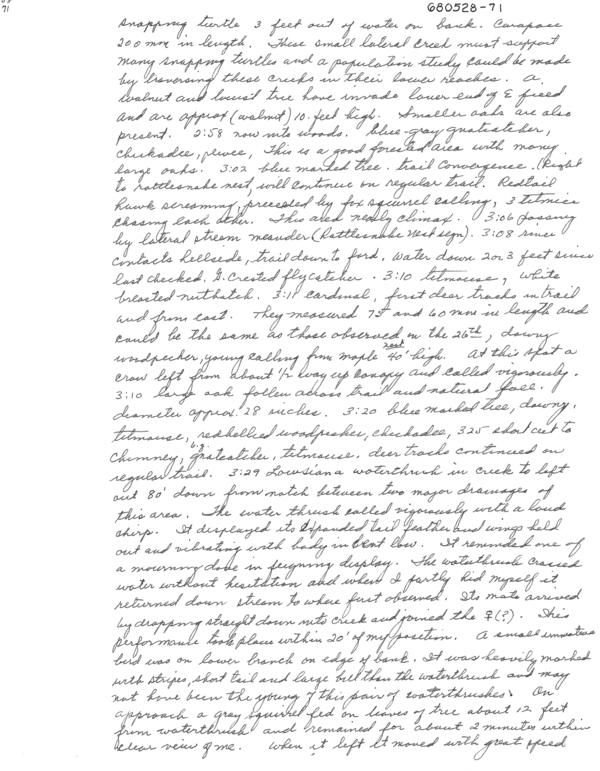 71
680528-71
snapping turtle 3 feet out of water on bank. Carapace
200 mm in length. These small lateral creek must support
many snapping turtles and a population study could be made
by traversing these creeks in their lower reaches. A
walnut and locust tree have invade lower end of E field
and are approx (walnut) 10 feet high. Smaller oaks are also
present. 2:58 now into woods. blue-gray gnatcatcher,
chickadee, pewee, This is a good forested area with many
large oaks. 3:02 blue marked tree. trail convergence. (Right
to rattlesnake nest, will continue on regular trail. Redtail
hawk screaming, preceeded by fox squirrel calling, 3 titmice
chasing each other. This area nearly climax. 3:06 passing
by lateral stream meander (Rattlesnake Nest sign). 3:08 river
contacts hillside, trail down to ford. Water down 2 or 3 feet since
last checked. G. Crested flycatcher. 3:10 titmouse, white
breasted nuthatch. 3:11 cardinal, first deer tracks in trail
and from east. They measured 75 and 60 mm in length and
could be the same as those observed on the 26th, downy
woodpecker, young calling from maple nest 40' high. At this spot a
crow left from about 1/2 way up canopy and called vigorously.
3:10 large oak fallen across trail and natural fall.
diameter approx. 28 inches. 3:20 blue marked tree, downy,
titmouse, redbellied woodpecker, chickadee, 325 short cut to
chimney, b.g. gnatcatcher, titmouse. deer tracks continued on
regular trail. 3:29 Louisiana waterthrush in creek to left
out 80' down from notch between two major drainages of
this area. The water thrush called vigorously with a loud
chirp. It displayed its expanded tail feather and wings held
out and vibrating with body in bent low. It reminded one of
a mourning dove in feigning display. The waterthrush crossed
water without hesitation and when I partly hid myself it
returned down stream to where first observed. Its mate arrived
by dropping straight down into creek and joined the ♀(?). This
performance took place within 20' of my position. A small
bird was on lower branch on edge of bank. It was heavily marked
with stripes, short tail and large bill than the waterthrush and may
not have been the young of this pair of waterthrushes. On
approach a gray squirrel fed on leaves of tree about 12 feet
from waterthrush and remained for about 2 minutes within
clear view of me. When it left it moved with great speed